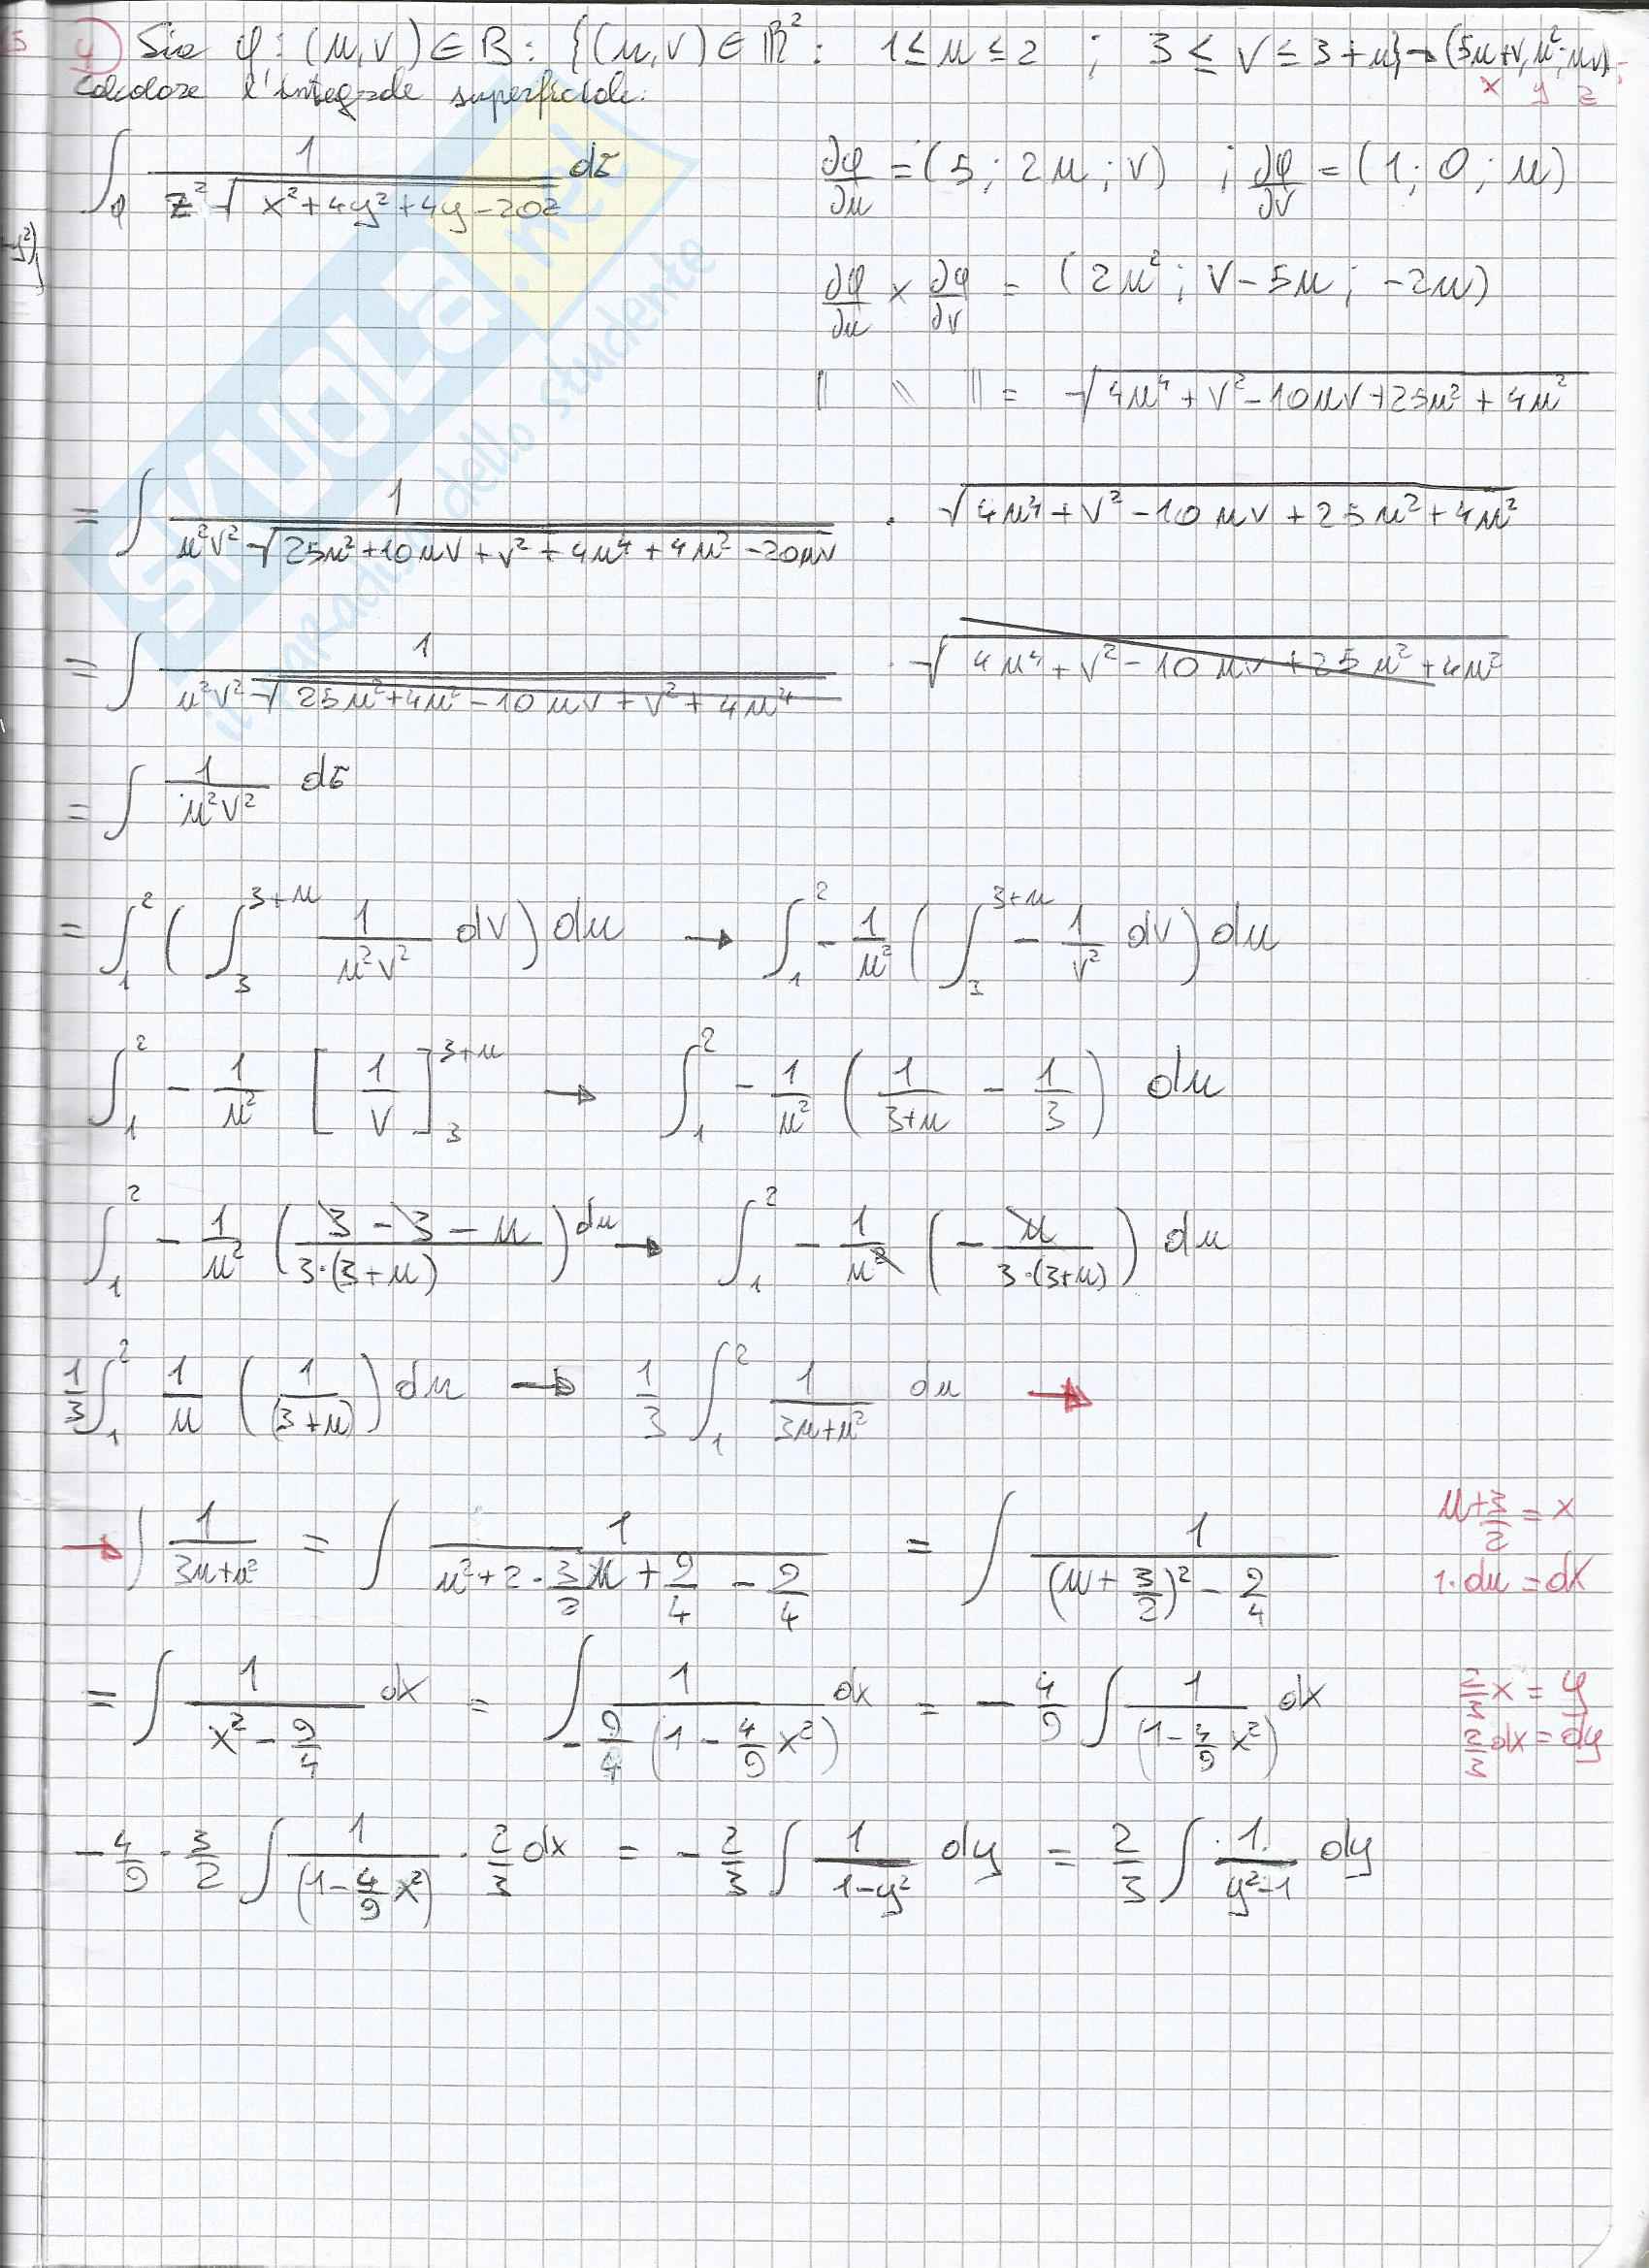 4) Sia φ: (u,v) ∈ B: {(u,v) ∈ ℝ²: 1 ≤ u ≤ 2 ; 3 ≤ v ≤ 3+u} → (5u+v, u²; uv);
calcolare l'integrale superficiale: x y z
∫_φ 1/(z² √(x²+4y²+4y-20z)) dσ ∂φ/∂u = (5; 2u; v) ; ∂φ/∂v = (1; 0; u)
∂φ/∂u × ∂φ/∂v = (2u²; v-5u; -2u)
‖ \\ ‖ = √(4u⁴+v²-10uv+25u²+4u²)
= ∫ 1/(u²v² √(25u²+10uv+v²+4u⁴+4u²-20uv)) · √(4u⁴+v²-10uv+25u²+4u²)
= ∫ 1/(u²v² √(25u²+4u²-10uv+v²+4u⁴)) · √(4u⁴+v²-10uv+25u²+4u²)
= ∫ 1/(u²v²) dσ
= ∫_1^2 ( ∫_3^{3+u} 1/(u²v²) dv) du → ∫_1^2 - 1/u² ( ∫_3^{3+u} - 1/v² dv) du
∫_1^2 - 1/u² [1/v]_3^{3+u} → ∫_1^2 - 1/u² (1/(3+u) - 1/3) du
∫_1^2 - 1/u² ((3-3-u)/(3·(3+u))) du → ∫_1^2 - 1/u² (- u/(3·(3+u))) du
1/3 ∫_1^2 1/u (1/(3+u)) du → 1/3 ∫_1^2 1/(3u+u²) du →
→ ∫ 1/(3u+u²) = ∫ 1/(u²+2·3/2 u + 9/4 - 9/4) = ∫ 1/((u+3/2)² - 9/4) u+3/2 = x
1·du = dx
= ∫ 1/(x² - 9/4) dx = ∫ 1/(-9/4 (1 - 4/9 x²)) dx = - 4/9 ∫ 1/(1 - 4/9 x²) dx 2/3 x = y
2/3 dx = dy
- 4/9 · 3/2 ∫ 1/(1 - 4/9 x²) · 2/3 dx = - 2/3 ∫ 1/(1-y²) dy = 2/3 ∫ 1/(y²-1) dy
SKUOLA.net
il paradiso dello studente